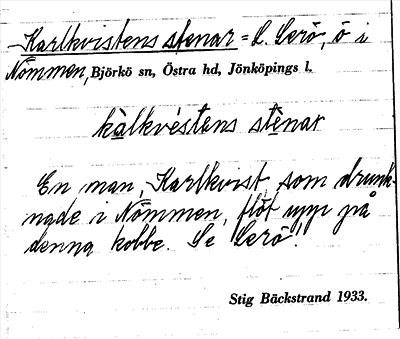 Karlkvistens stenar = L. Lerö, ö i
Nömmen, Björkö sn, Östra hd, Jönköpings l.
kàlkvéstens stenar
En man, Karlkvist, som drunk-
nade i Nömmen, flöt upp på
denna kobbe. Se Lerö!
Stig Bäckstrand 1933.